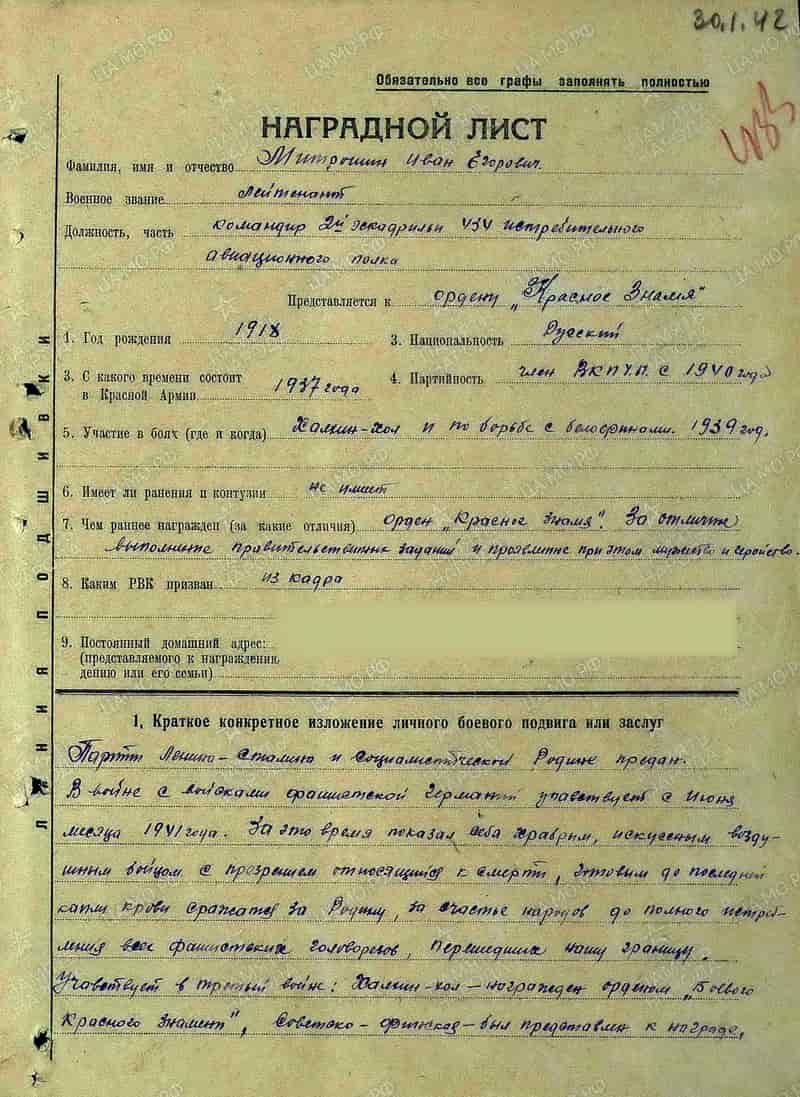 30.1.42
Обязательно все графы заполнять полностью
НАГРАДНОЙ ЛИСТ
Фамилия, имя и отчество Митрошин Иван Егорович.
Военное звание Лейтенант
Должность, часть командир 2й эскадрильи истребительного
авиационного полка
Представляется к ордену „Красное Знамя"
1. Год рождения 1918 3. Национальность Русский
3. С какого времени состоит 1937 года 4. Партийность член ВКП/б/. с 1940 год
в Красной Армии
5. Участие в боях (где и когда) Халкин-Гол и по борьбе с белофинами. 1939 год.
6. Имеет ли ранения и контузии не имеет
7. Чем раннее награжден (за какие отличия) Орден „Красное Знамя". За отличное
выполнение правительственных заданий и проявление при этом мужество и геройство.
8. Каким РВК призван из кадра
9. Постоянный домашний адрес:
(представляемого к награждению
дению или его семьи)
1. Краткое конкретное изложение личного боевого подвига или заслуг
Партии Ленина-Сталина и Социалистической Родине предан.
В войне с войсками фашистской Германии участвует с Июня
месяца 1941 года. За это время показал себя храбрым, искусенным возду-
шным бойцом с презрением относящийся к смерти, готовым до последней
капли крови сражатся за Родину, за счастье народов до полного истреб-
ления всех фашистских головорезов, перешедших нашу границу.
Учавствует в третьей войне: Халкин-гол - награжден орденом „Боевого
Красного Знамени", Советско-финская - был представлен к награде,
ЦАМО.РФ